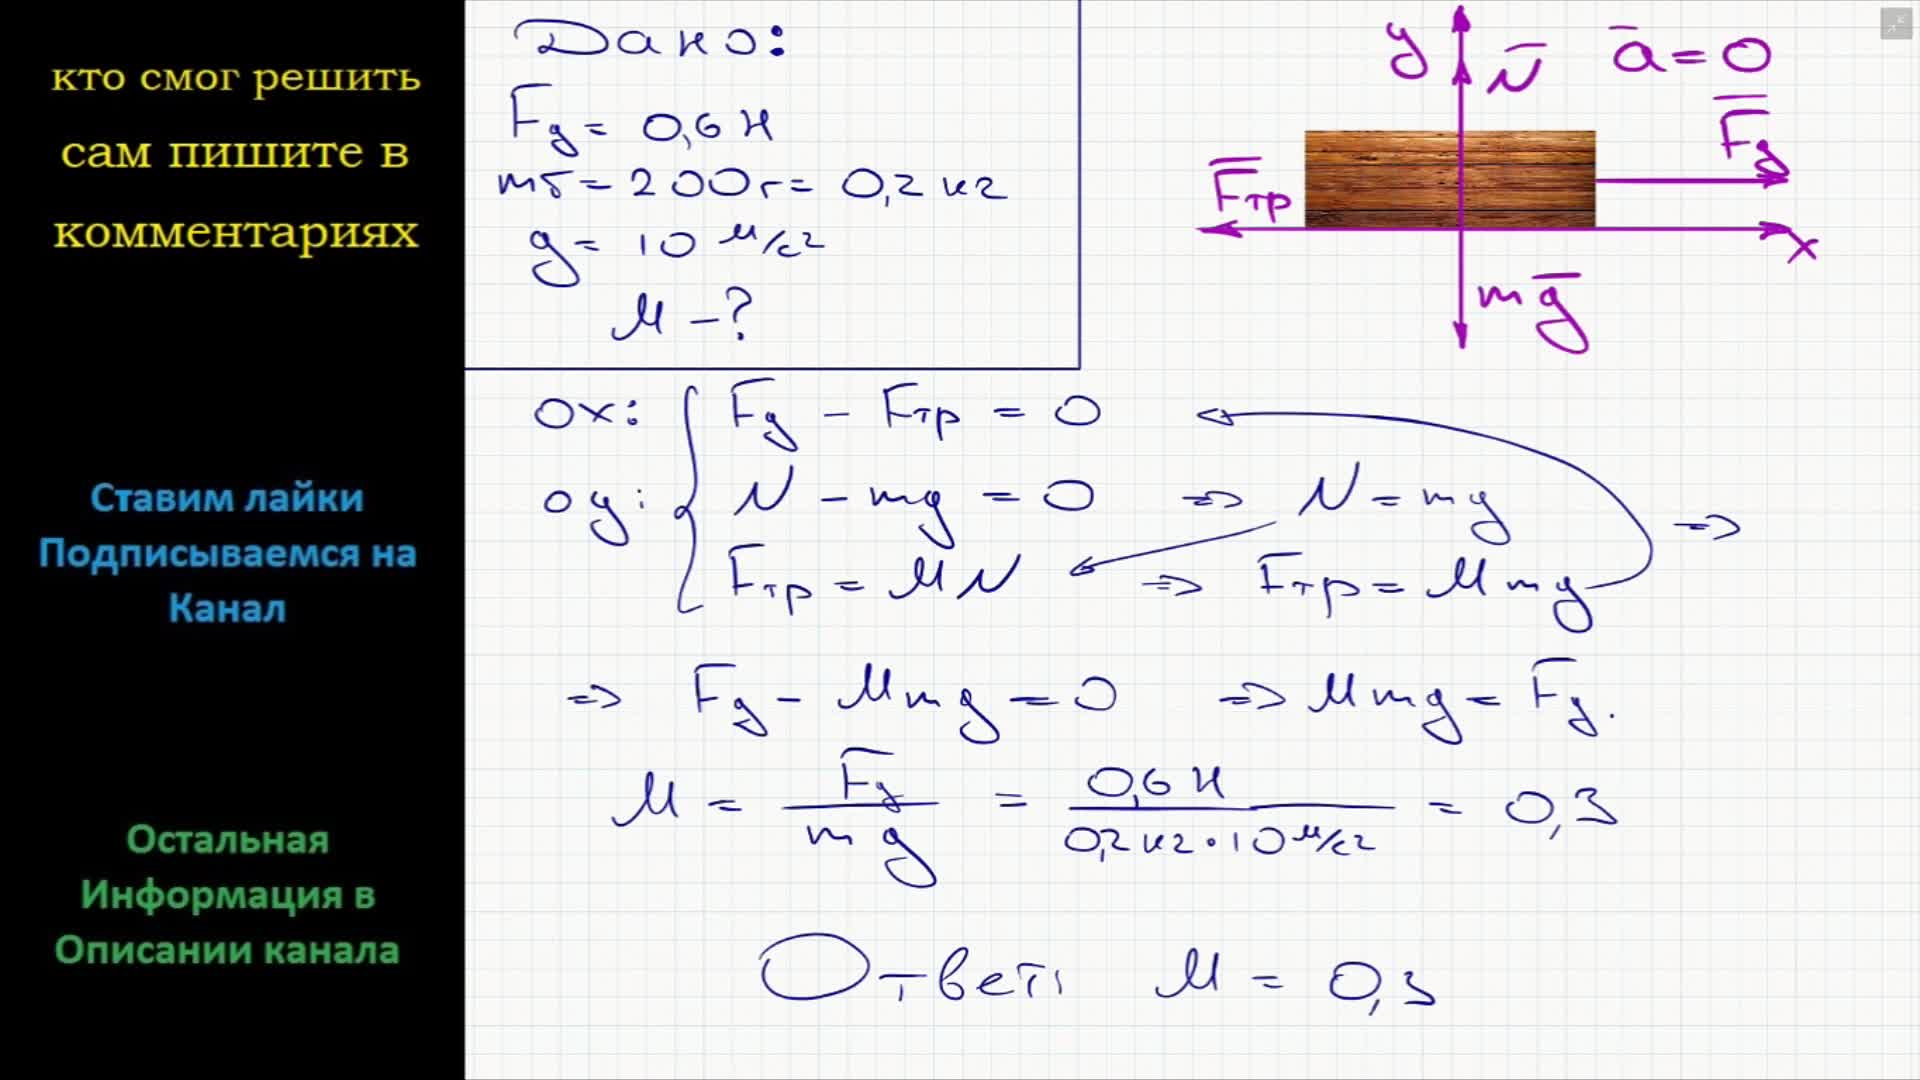 кто смог решить
сам пишите в
комментариях
Ставим лайки
Подписываемся на
Канал
Остальная
Информация в
Описании канала
Дано:
Fд = 0,6 Н
mб = 200г = 0,2 кг
g = 10 м/с²
μ - ?
y N̅ a̅ = 0
F̅д
F̅тр
x
mg̅
ox: Fд - Fтр = 0
oy: N - mg = 0 => N = mg =>
Fтр = μN => Fтр = μmg
=> Fд - μmg = 0 => μmg = Fд.
μ = Fд / mg = 0,6 Н / 0,2 кг · 10 м/с² = 0,3
Ответ: μ = 0,3